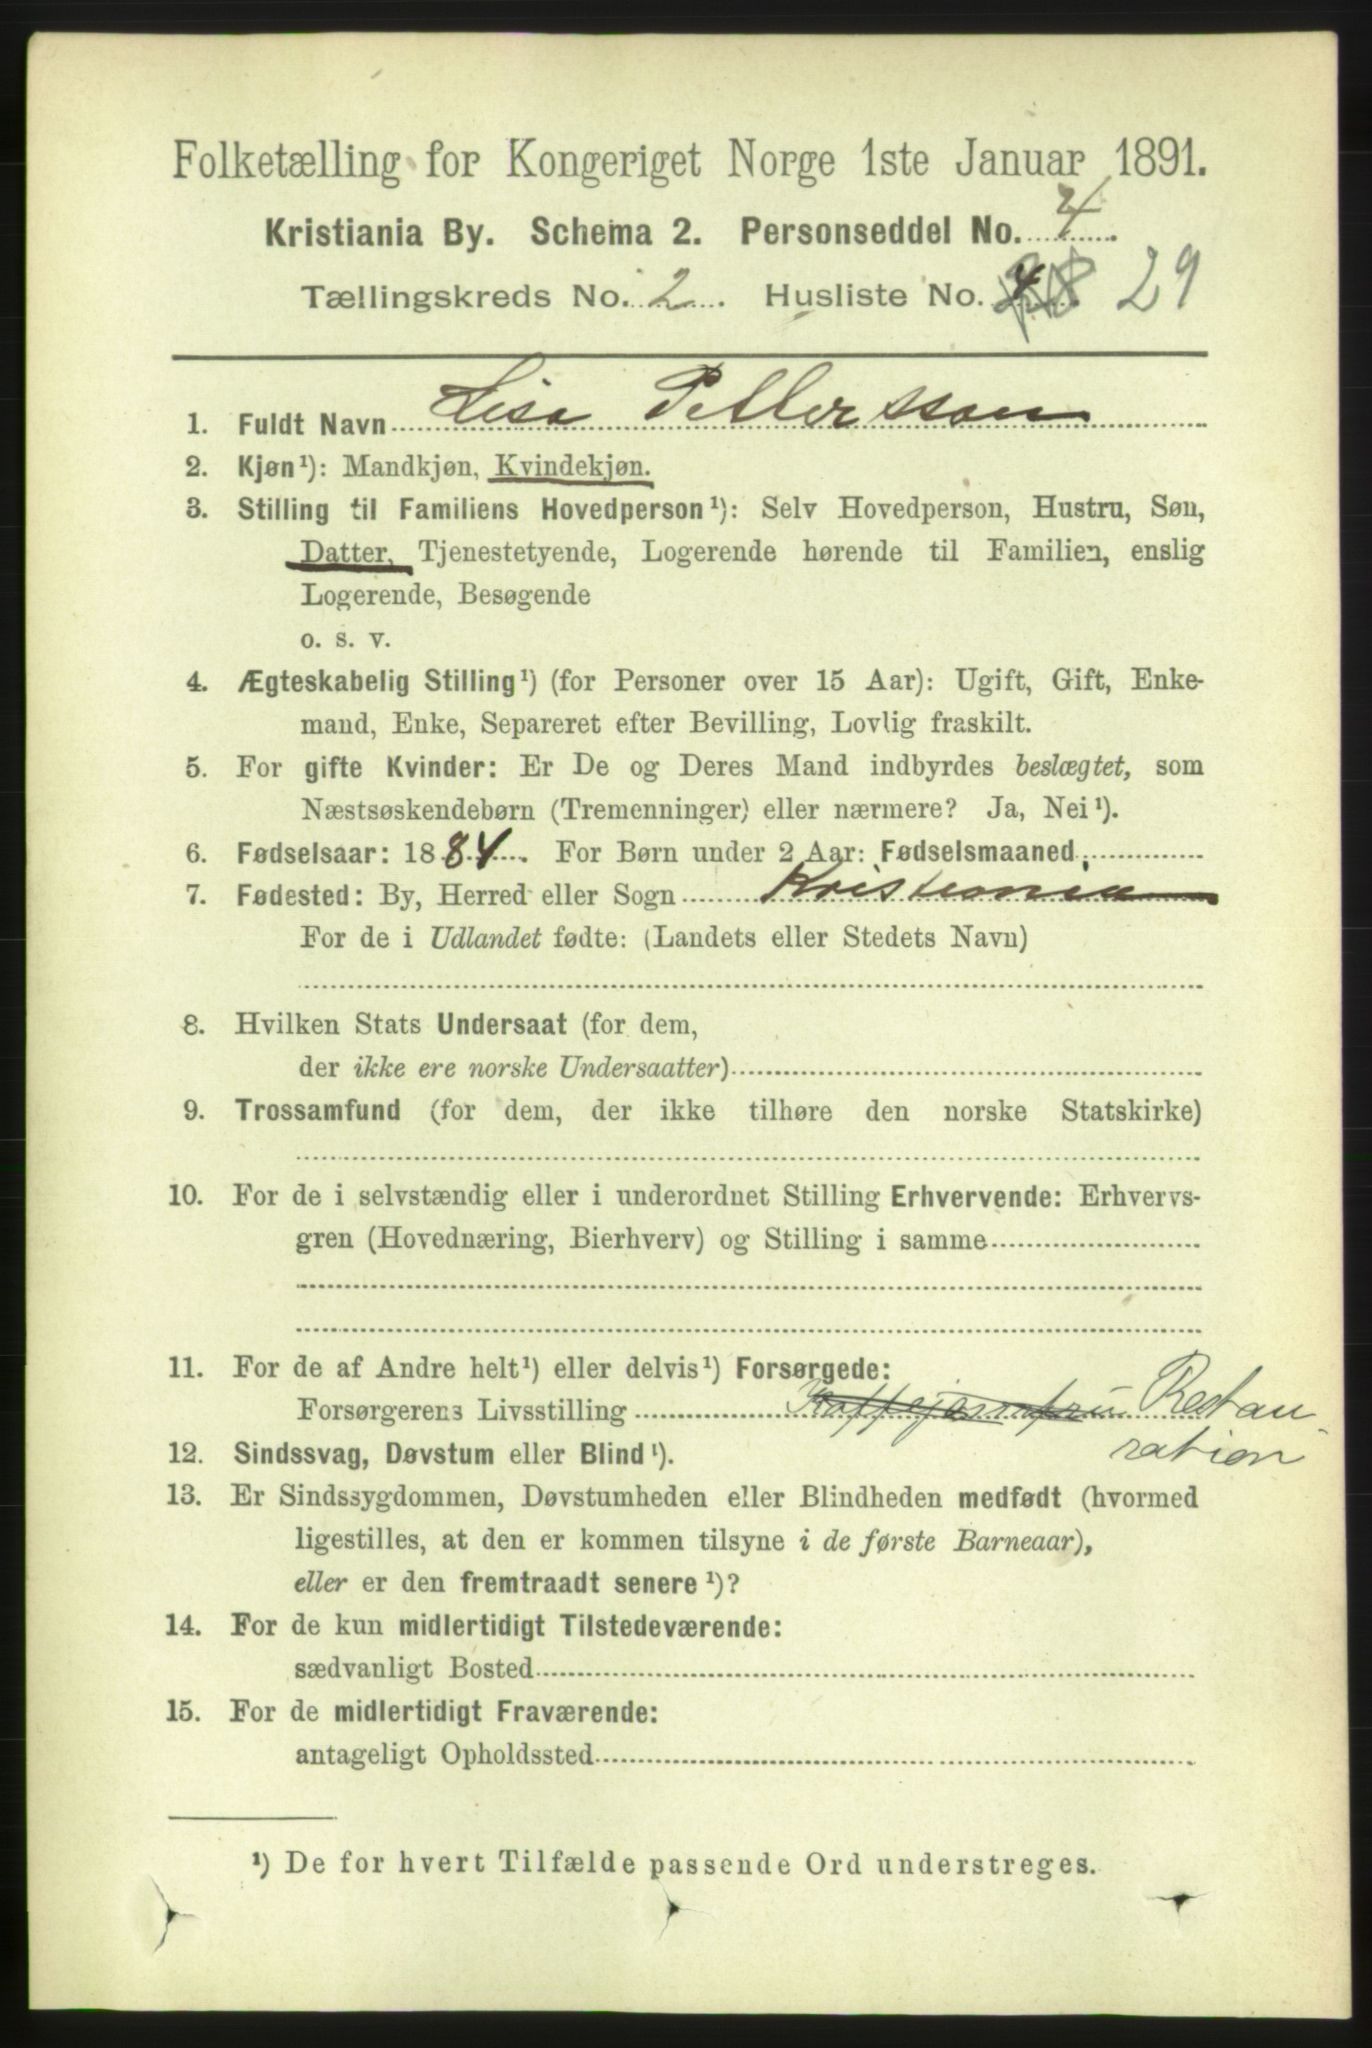 Folketælling for Kongeriget Norge 1ste Januar 1891.
Kristiania By. Schema 2. Personseddel No. 4
Tællingskreds No. 2 Husliste No. 29
1. Fuldt Navn Lisa Pettersson
2. Kjøn¹): Mandkjøn, Kvindekjøn.
3. Stilling til Familiens Hovedperson¹): Selv Hovedperson, Hustru, Søn,
Datter, Tjenestetyende, Logerende hørende til Familien, enslig
Logerende, Besøgende
o. s. v.
4. Ægteskabelig Stilling¹) (for Personer over 15 Aar): Ugift, Gift, Enke-
mand, Enke, Separeret efter Bevilling, Lovlig fraskilt.
5. For gifte Kvinder: Er De og Deres Mand indbyrdes beslægtet, som
Næstsøskendebørn (Tremenninger) eller nærmere? Ja, Nei¹).
6. Fødselsaar: 1884. For Børn under 2 Aar: Fødselsmaaned
7. Fødested: By, Herred eller Sogn Kristiania
For de i Udlandet fødte: (Landets eller Stedets Navn)
8. Hvilken Stats Undersaat (for dem,
der ikke ere norske Undersaatter)
9. Trossamfund (for dem, der ikke tilhøre den norske Statskirke)
10. For de i selvstændig eller i underordnet Stilling Erhvervende: Erhvervs-
gren (Hovednæring, Bierhverv) og Stilling i samme
11. For de af Andre helt¹) eller delvis¹) Forsørgede:
Forsørgerens Livsstilling Restau-
ration
12. Sindssvag, Døvstum eller Blind¹).
13. Er Sindssygdommen, Døvstumheden eller Blindheden medfødt (hvormed
ligestilles, at den er kommen tilsyne i de første Barneaar),
eller er den fremtraadt senere¹)?
14. For de kun midlertidigt Tilstedeværende:
sædvanligt Bosted
15. For de midlertidigt Fraværende:
antageligt Opholdssted
¹) De for hvert Tilfælde passende Ord understreges.